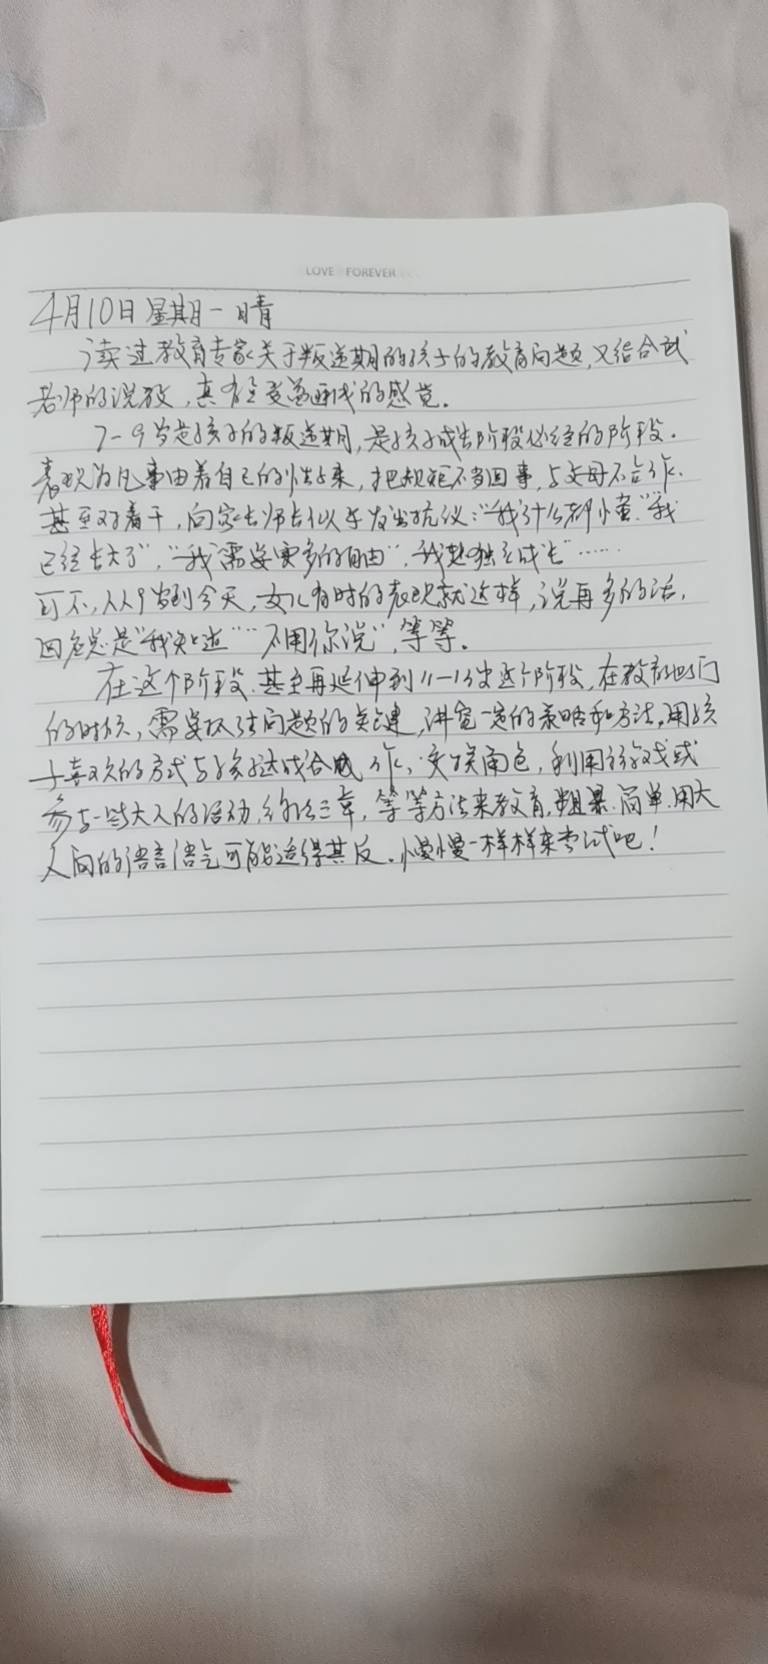 LOVE FOREVER
4月10日 星期一 晴
读过教育专家关于叛逆期的孩子的教育问题,又结合
老师的说教,真有受益匪浅的感觉。
7-9岁是孩子的叛逆期,是孩子成长阶段必经的阶段。
表现为凡事由着自己的性子来,把规矩不当回事,与父母不合作.
甚至对着干,向家长师长似乎发出抗议:“我什么都懂”“我
已经长大了”,“我需要更多的自由”,“我想独立成长”……
可不,从9岁到今天,女儿有时的表现就这样,说再多的话,
回答总是“我知道”“不用你说”,等等。
在这个阶段.甚至再延伸到11-13岁这个阶段,在教育她们
的时候,需要抓住问题的关键,讲究一定的策略和方法,用孩
子喜欢的方式与孩子达成合作,交换角色,利用游戏或
参与一些大人的活动,约法三章,等等方法来教育,粗暴.简单.用大
人间的语言语气可能适得其反.慢慢一样样来尝试吧!